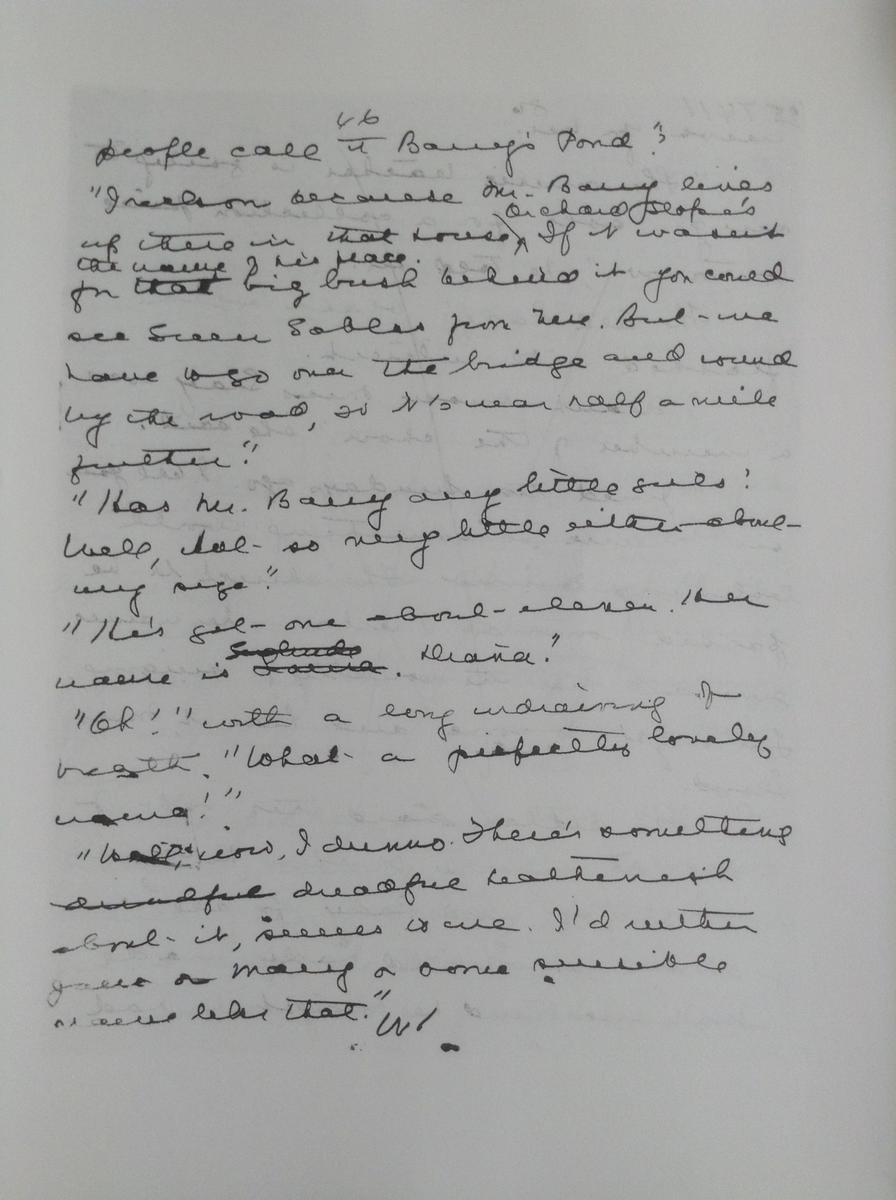 46
people call it Barry's Pond?
"I reckon because Mr. Barry lives
Orchard Slope's
up there in that house. If it wasn't
the name of his place.
for that big bush behind it you could
see Green Gables from here. But we
have to go over the bridge and round
by the road, so it's near half a mile
further."
"Has Mr. Barry any little girls?
Well, not so very little either about
my size."
"He's got one about eleven. Her
Gertrude
name is Laura. Diana."
"Oh!" with a long indrawing of
breath. "What a perfectly lovely
name!"
"Well now, I dunno. There's something
dreadful dreadful heathenish
about it, seems to me. I'd ruther
Jane or Mary or some sensible
name like that."